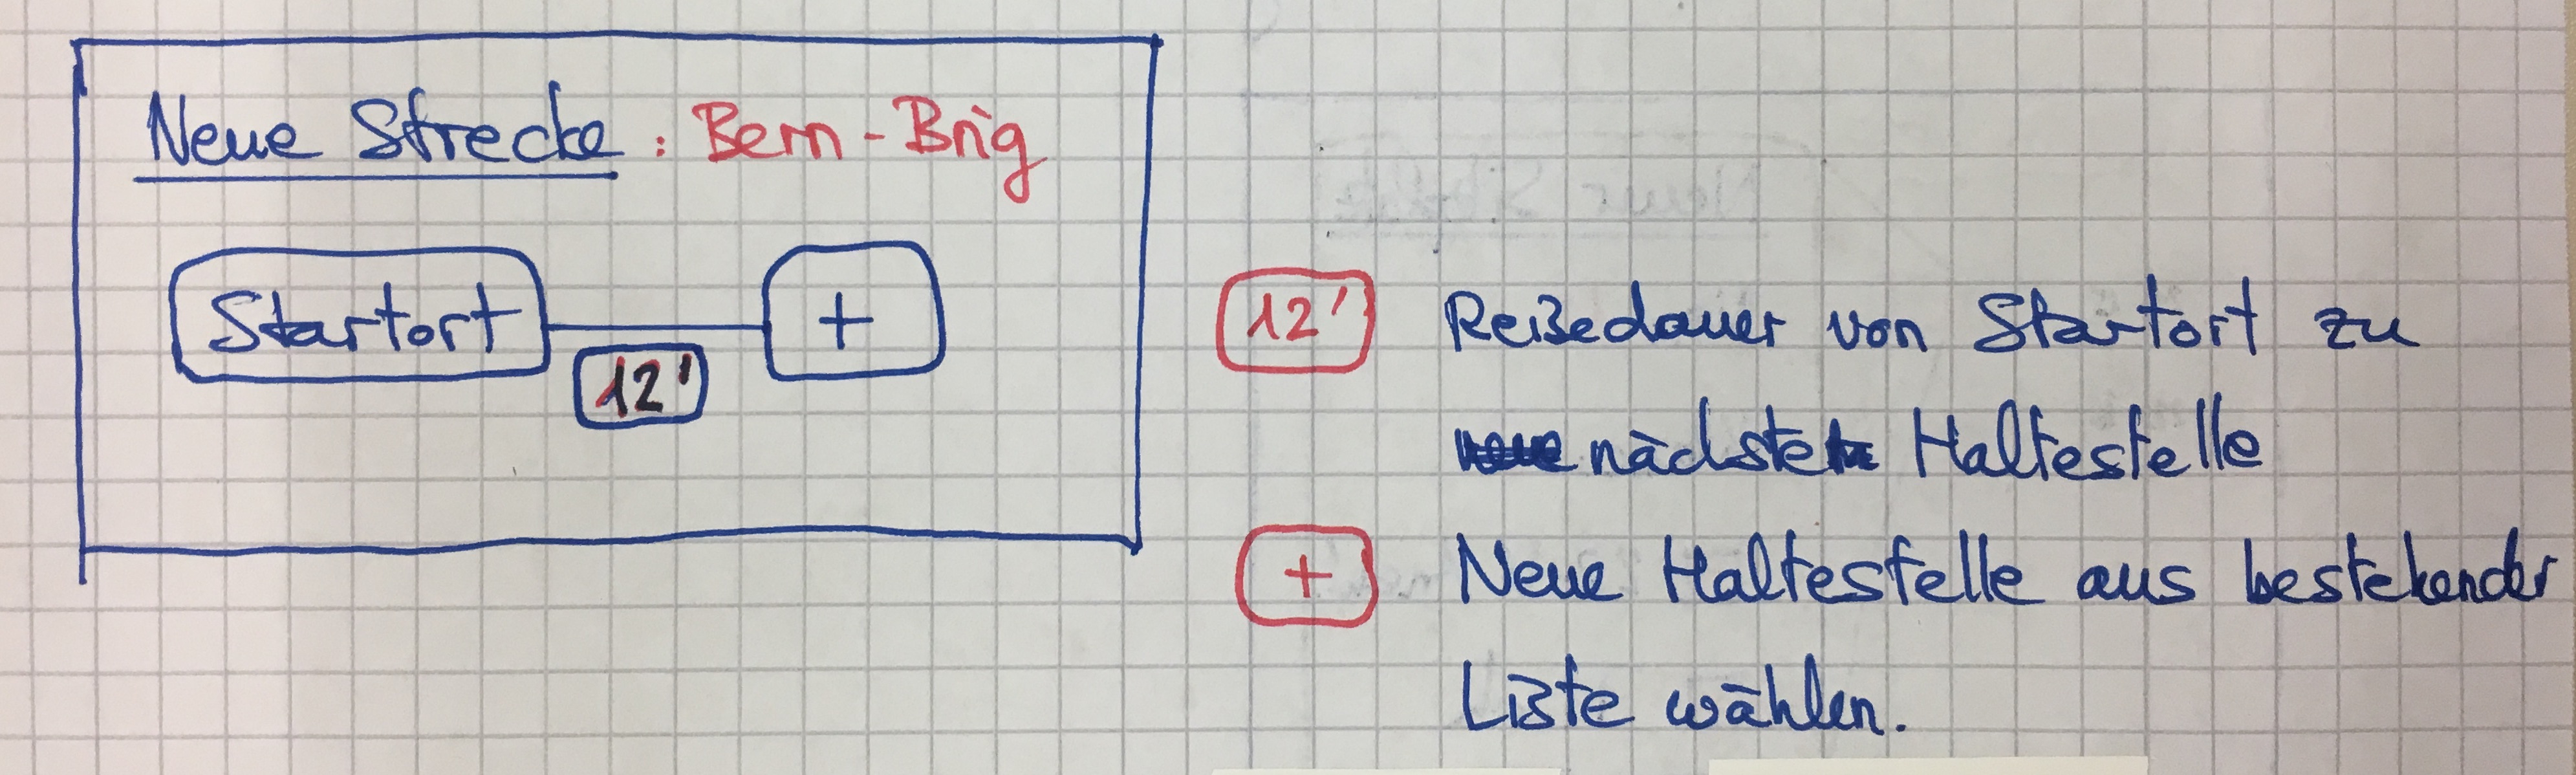 Neue Strecke: Bern - Brig
Startort +
12'
12' Reisedauer von Startort zu
nächste Haltestelle
+ Neue Haltestelle aus bestehender
Liste wählen.